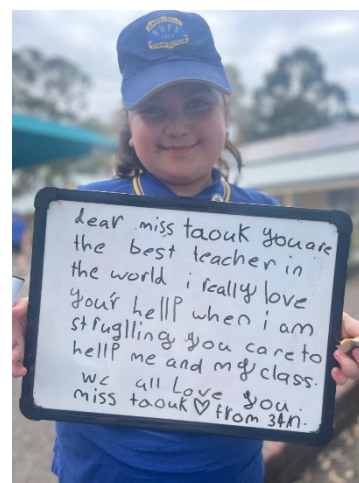 BHPS
dear miss taouk you are
the best teacher in
the world i really love
your hellp when i am
struglling you care to
hellp me and my class.
we all Love you.
miss taouk ♡ from 34N.